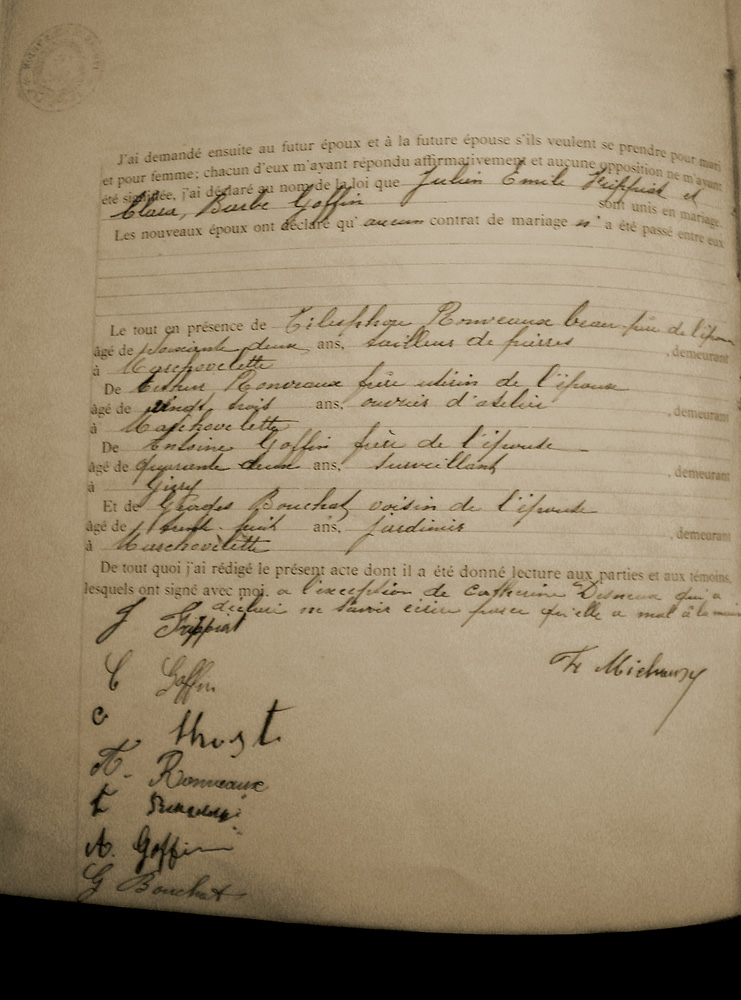 J'ai demandé ensuite au futur époux et à la future épouse s'ils veulent se prendre pour mari
et pour femme; chacun d'eux m'ayant répondu affirmativement et aucune opposition ne m'ayant
été signifiée, j'ai déclaré au nom de la loi que Julien Emile Frippiat et
Clara, Barbe Goffin sont unis en mariage.
Les nouveaux époux ont déclaré qu'aucun contrat de mariage n'a été passé entre eux
Le tout en présence de Télesphore Ronveaux beau-père de l'épouse
âgé de soixante deux ans, tailleur de pierres, demeurant
à Marchovelette
De Ronveaux frère utérin de l'épouse
âgé de vingt trois ans, ouvrier d'atelier, demeurant
à Marchovelette
De Antoine Goffin frère de l'épouse
âgé de quarante deux ans, surveillant, demeurant
à
Et de Georges Bouchat voisin de l'épouse
âgé de trente huit ans, jardinier, demeurant
à Marchovelette
De tout quoi j'ai rédigé le présent acte dont il a été donné lecture aux parties et aux témoins,
lesquels ont signé avec moi. a l'exception de Catherine qui a
déclaré ne savoir écrire parce qu'elle a mal à la main
J Frippiat
Fx
C Goffin
O
T. Ronveaux
Ronveaux
A. Goffin
G Bouchat